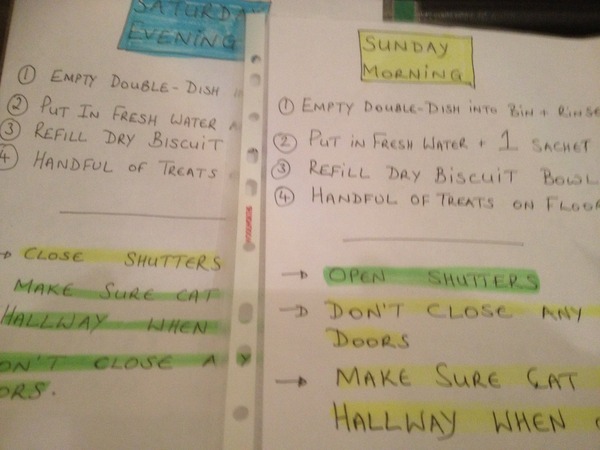 SATURDA
EVENING
① EMPTY DOUBLE-DISH
② PUT IN FRESH WATER
③ REFILL DRY BISCUIT
④ HANDFUL OF TREATS
→ CLOSE SHUTTERS
MAKE SURE CAT
HALLWAY WHEN
ON'T CLOSE A Y
ORS.
SUNDAY
MORNING
① EMPTY DOUBLE-DISH INTO BIN + RINSE
② PUT IN FRESH WATER + 1 SACHET
③ REFILL DRY BISCUIT BOWL
④ HANDFUL OF TREATS ON FLOO
→ OPEN SHUTTERS
→ DON'T CLOSE ANY
DOORS
→ MAKE SURE CAT
HALLWAY WHEN